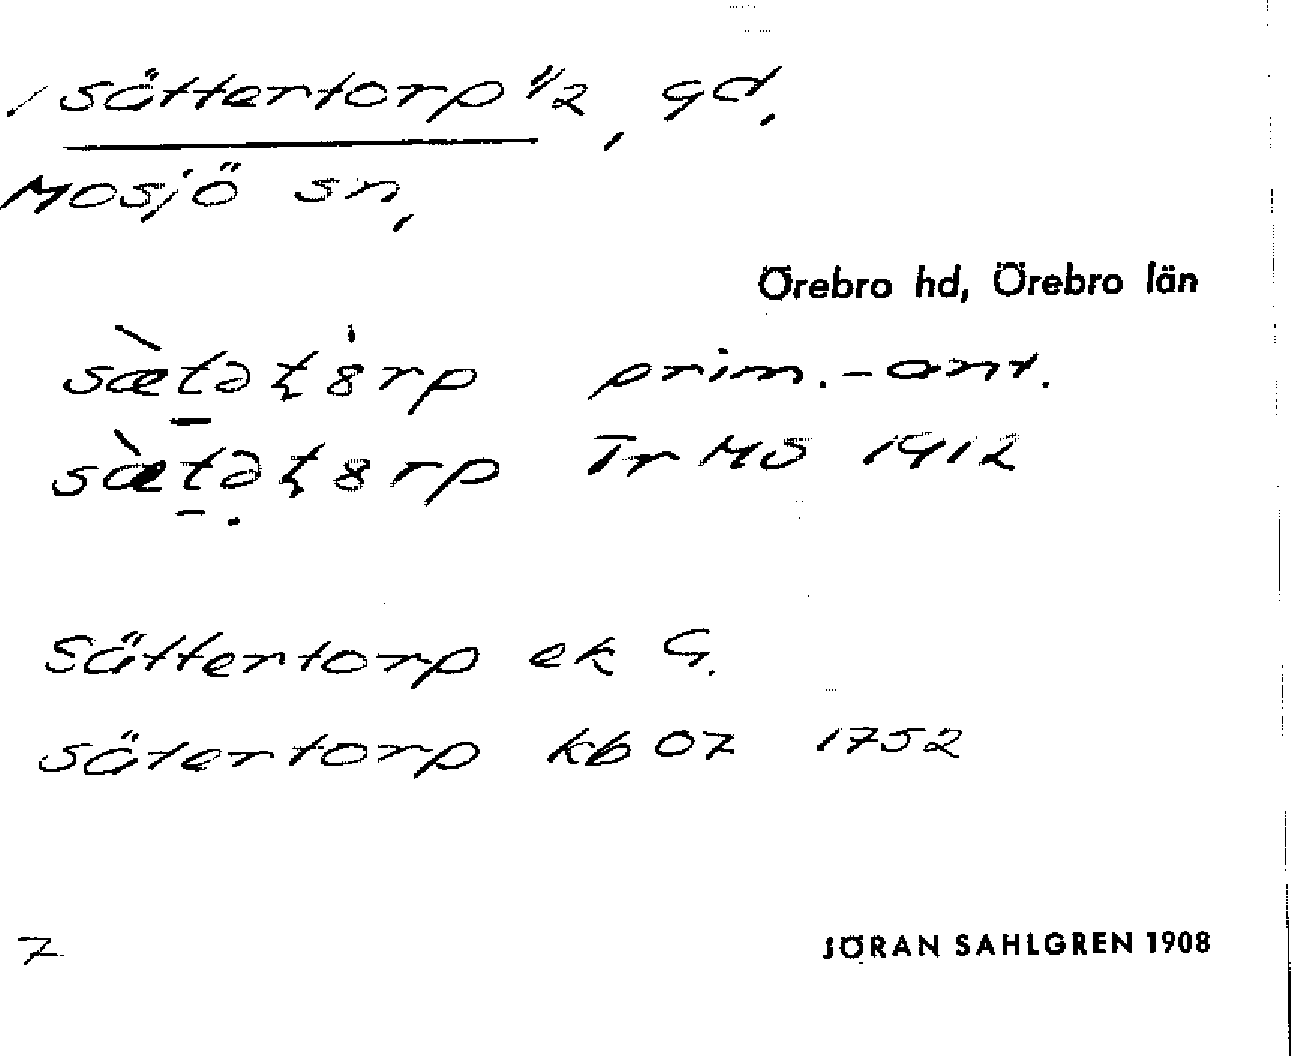 Sättertorp 1/2, gd.
Mosjö sn,
Örebro hd, Örebro län
sæ̀təʈ8rp prim.-ant.
sæ̀təʈ8rp Tr MS 1912
Sättertorp ek G.
Sätertorp kb 07 1752
7
JÖRAN SAHLGREN 1908